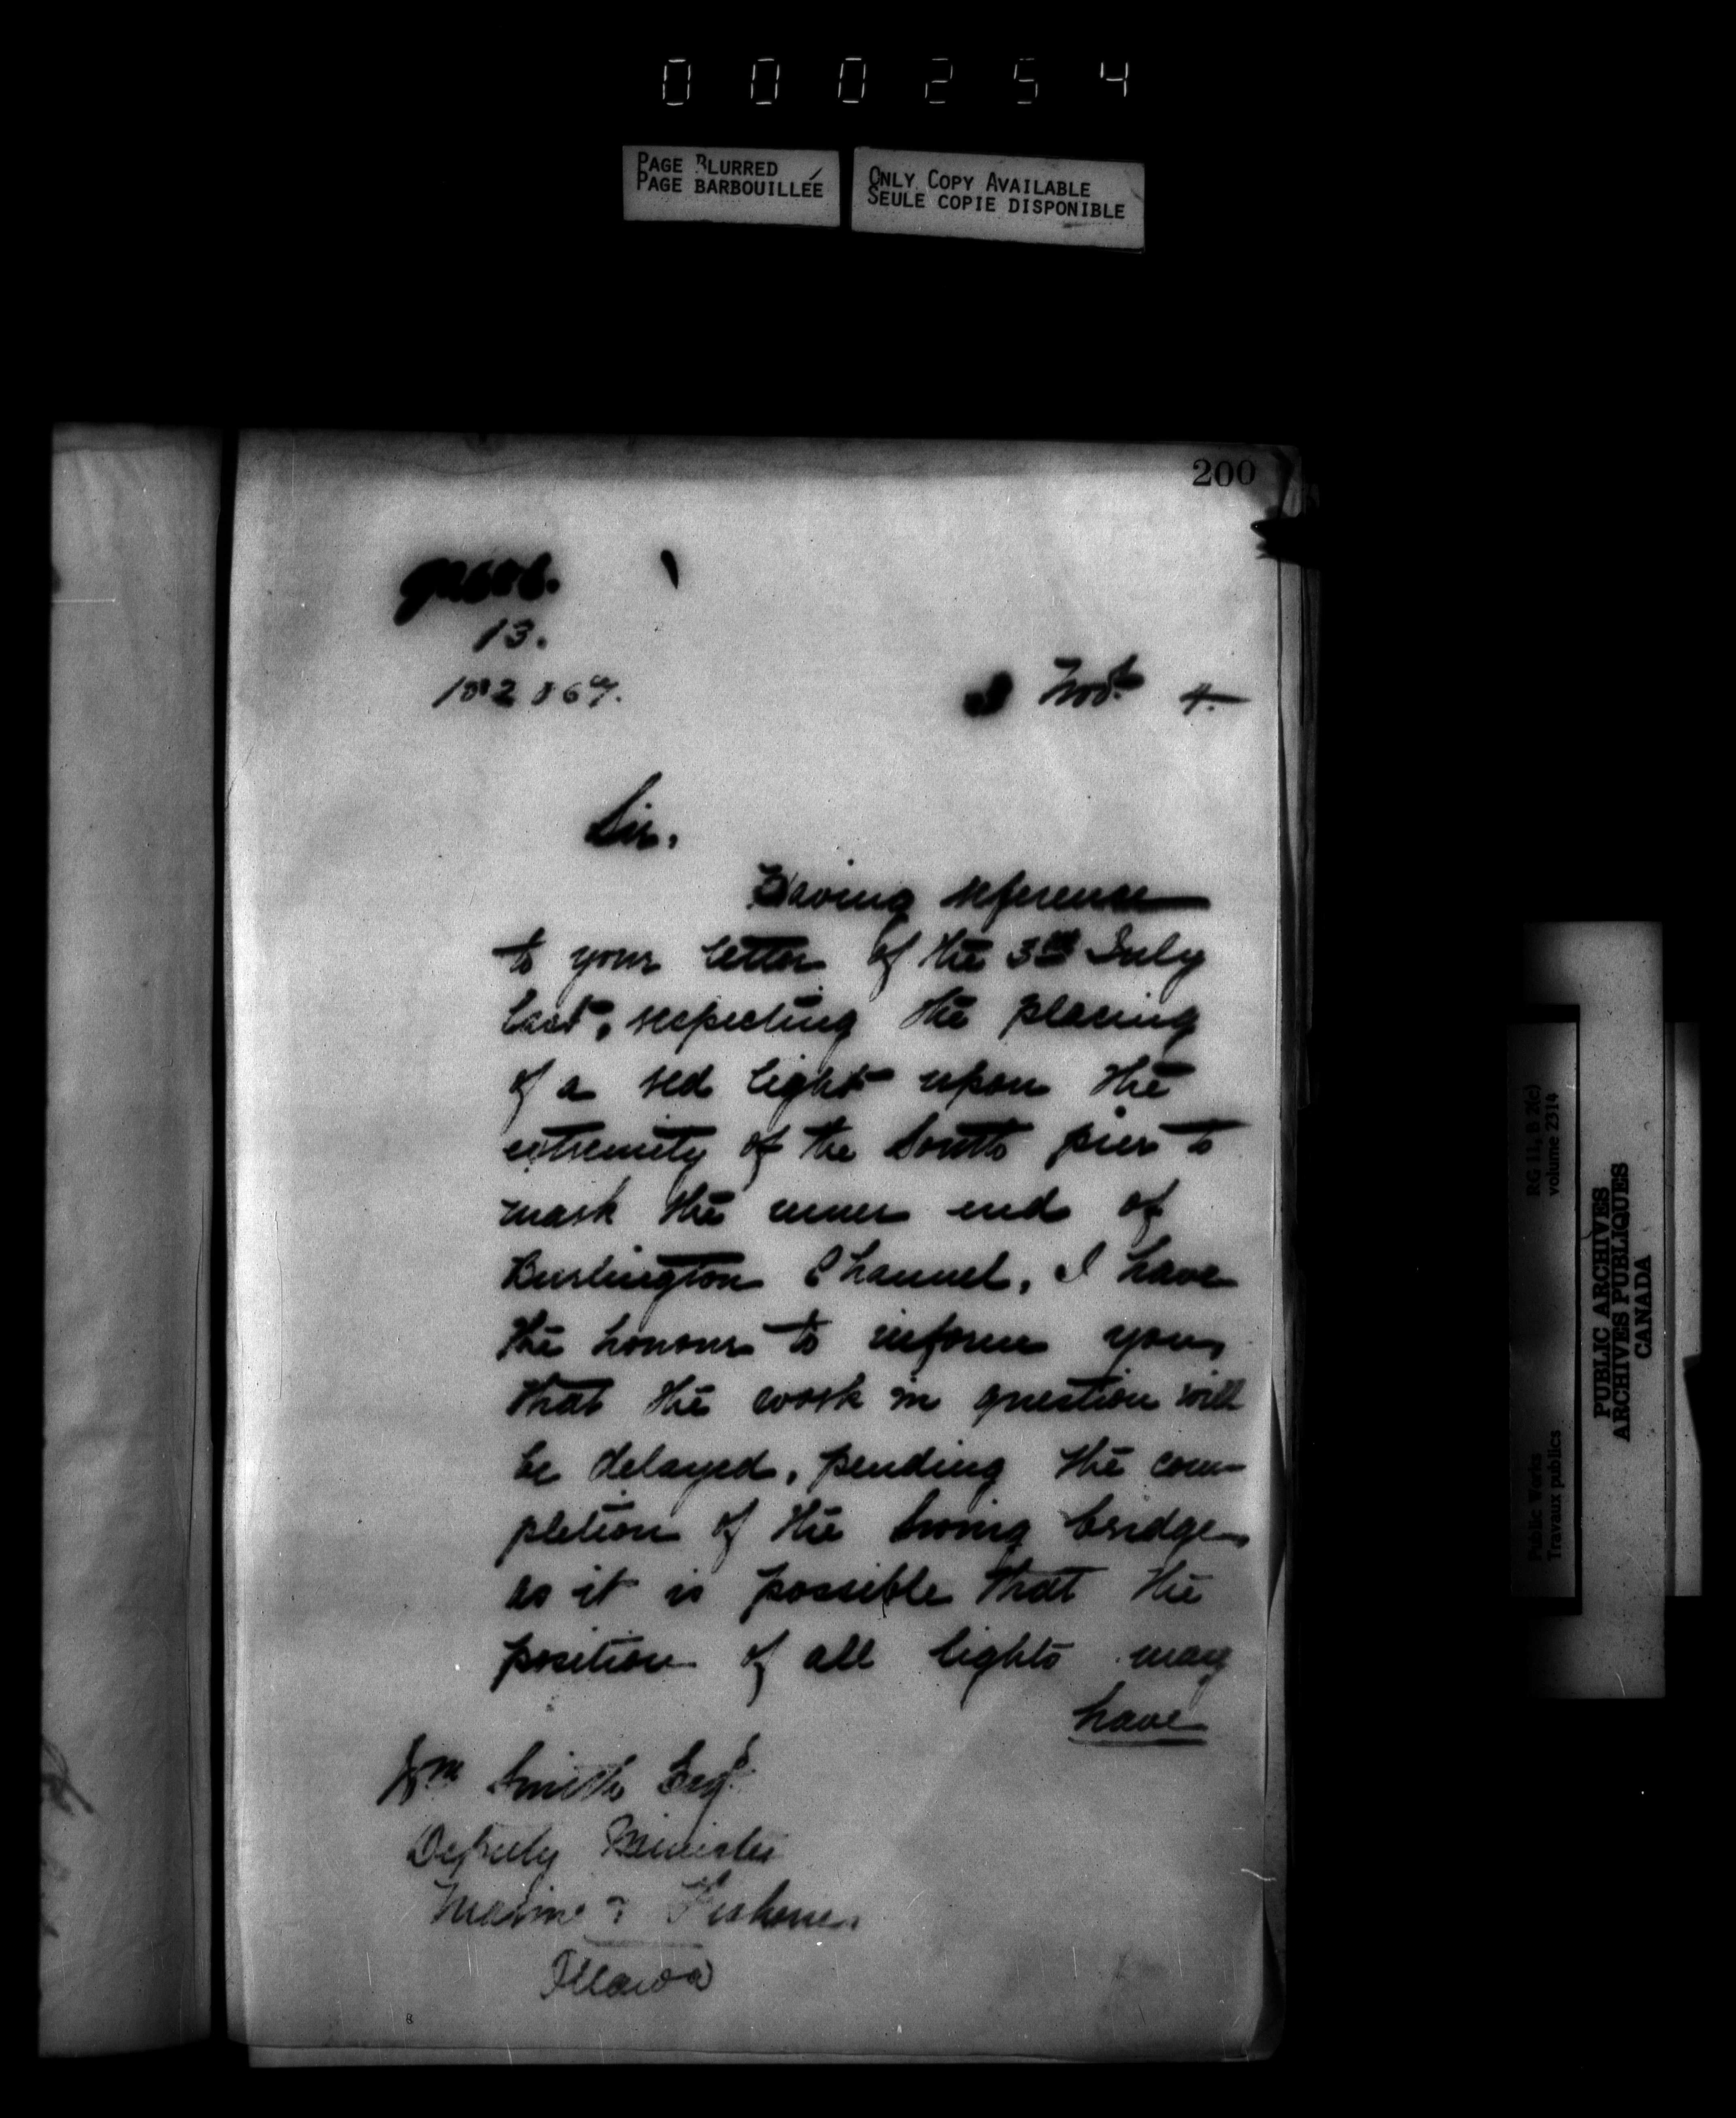 000254
PAGE BLURRED
PAGE BARBOUILLÉE
ONLY COPY AVAILABLE
SEULE COPIE DISPONIBLE
200
13.
Novr 4.
Sir,
Having reference
to your letter of the 3rd July
last, respecting the placing
of a red light upon the
extremity of the South pier to
mark the inner end of
Burlington Channel, I have
the honour to inform you,
that the work in question will
be delayed, pending the com-
pletion of the Swing bridge,
as it is possible that the
position of all lights may
have
Wm Smith Esqr
Deputy Minister
Marine & Fisheries
Ottawa
RG 11, B 2(c)
volume 2314
Public Works
Travaux publics
PUBLIC ARCHIVES
ARCHIVES PUBLIQUES
CANADA